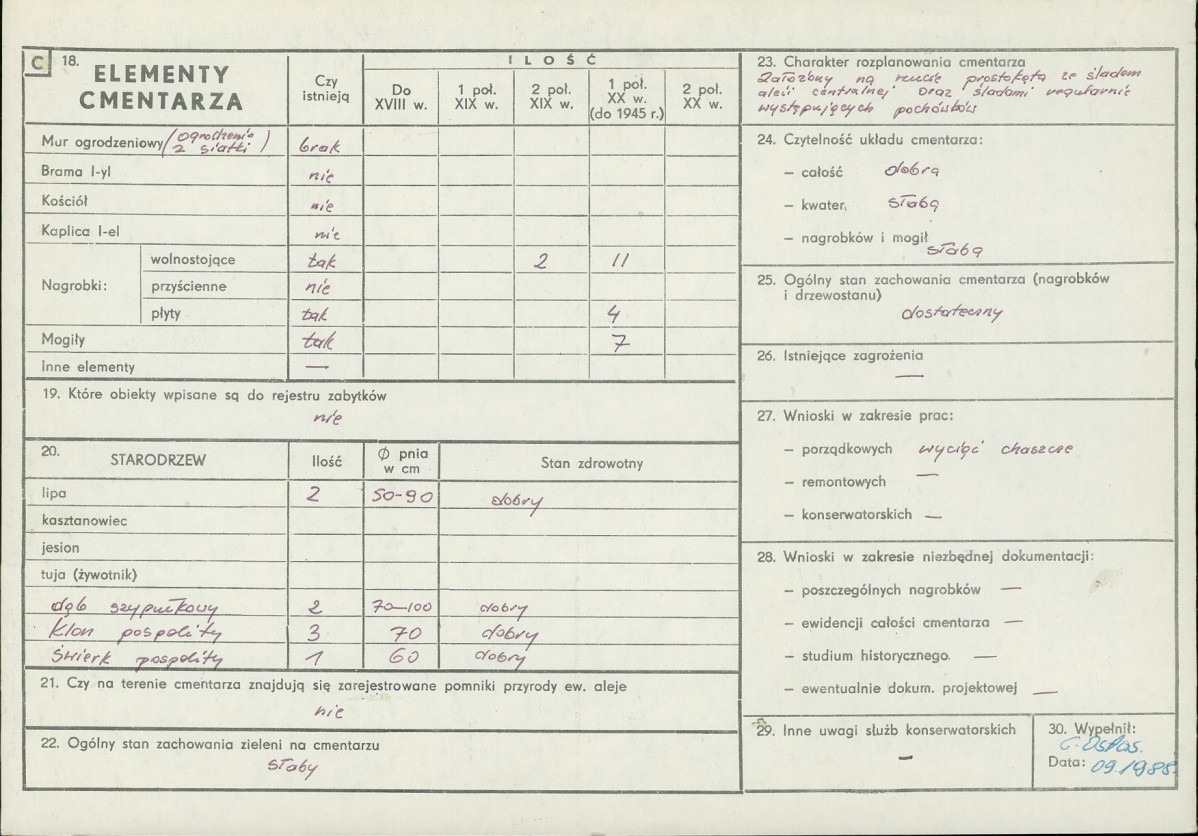 C 18. ELEMENTY CMENTARZA
Czy istnieją
ILOŚĆ
Do XVIII w.
1 poł. XIX w.
2 poł. XIX w.
1 poł. XX w. (do 1945 r.)
2 poł. XX w.
Mur ogrodzeniowy (ogrodzenie z siatki) brak
Brama l-yl nie
Kościół nie
Kaplica l-el nie
Nagrobki:
wolnostojące tak 2 11
przyścienne nie
płyty tak 4
Mogiły tak 7
Inne elementy —
19. Które obiekty wpisane są do rejestru zabytków
nie
20. STARODRZEW Ilość Ø pnia w cm Stan zdrowotny
lipa 2 50-90 dobry
kasztanowiec
jesion
tuja (żywotnik)
dąb szypułkowy 2 70-100 dobry
Klon pospolity 3 70 dobry
Świerk pospolity 1 60 dobry
21. Czy na terenie cmentarza znajdują się zarejestrowane pomniki przyrody ew. aleje
nie
22. Ogólny stan zachowania zieleni na cmentarzu
słaby
23. Charakter rozplanowania cmentarza
Założony na rzucie prostokąta ze śladem
aleii centralnej oraz śladami regularnie
występujących pochówków
24. Czytelność układu cmentarza:
— całość dobra
— kwater, słaba
— nagrobków i mogił
słaba
25. Ogólny stan zachowania cmentarza (nagrobków
i drzewostanu)
dostateczny
26. Istniejące zagrożenia
—
27. Wnioski w zakresie prac:
— porządkowych wyciąć chaszcze
— remontowych —
— konserwatorskich —
28. Wnioski w zakresie niezbędnej dokumentacji:
— poszczególnych nagrobków —
— ewidencji całości cmentarza —
— studium historycznego. —
— ewentualnie dokum. projektowej —
29. Inne uwagi służb konserwatorskich
—
30. Wypełnił:
Data: 09.1985